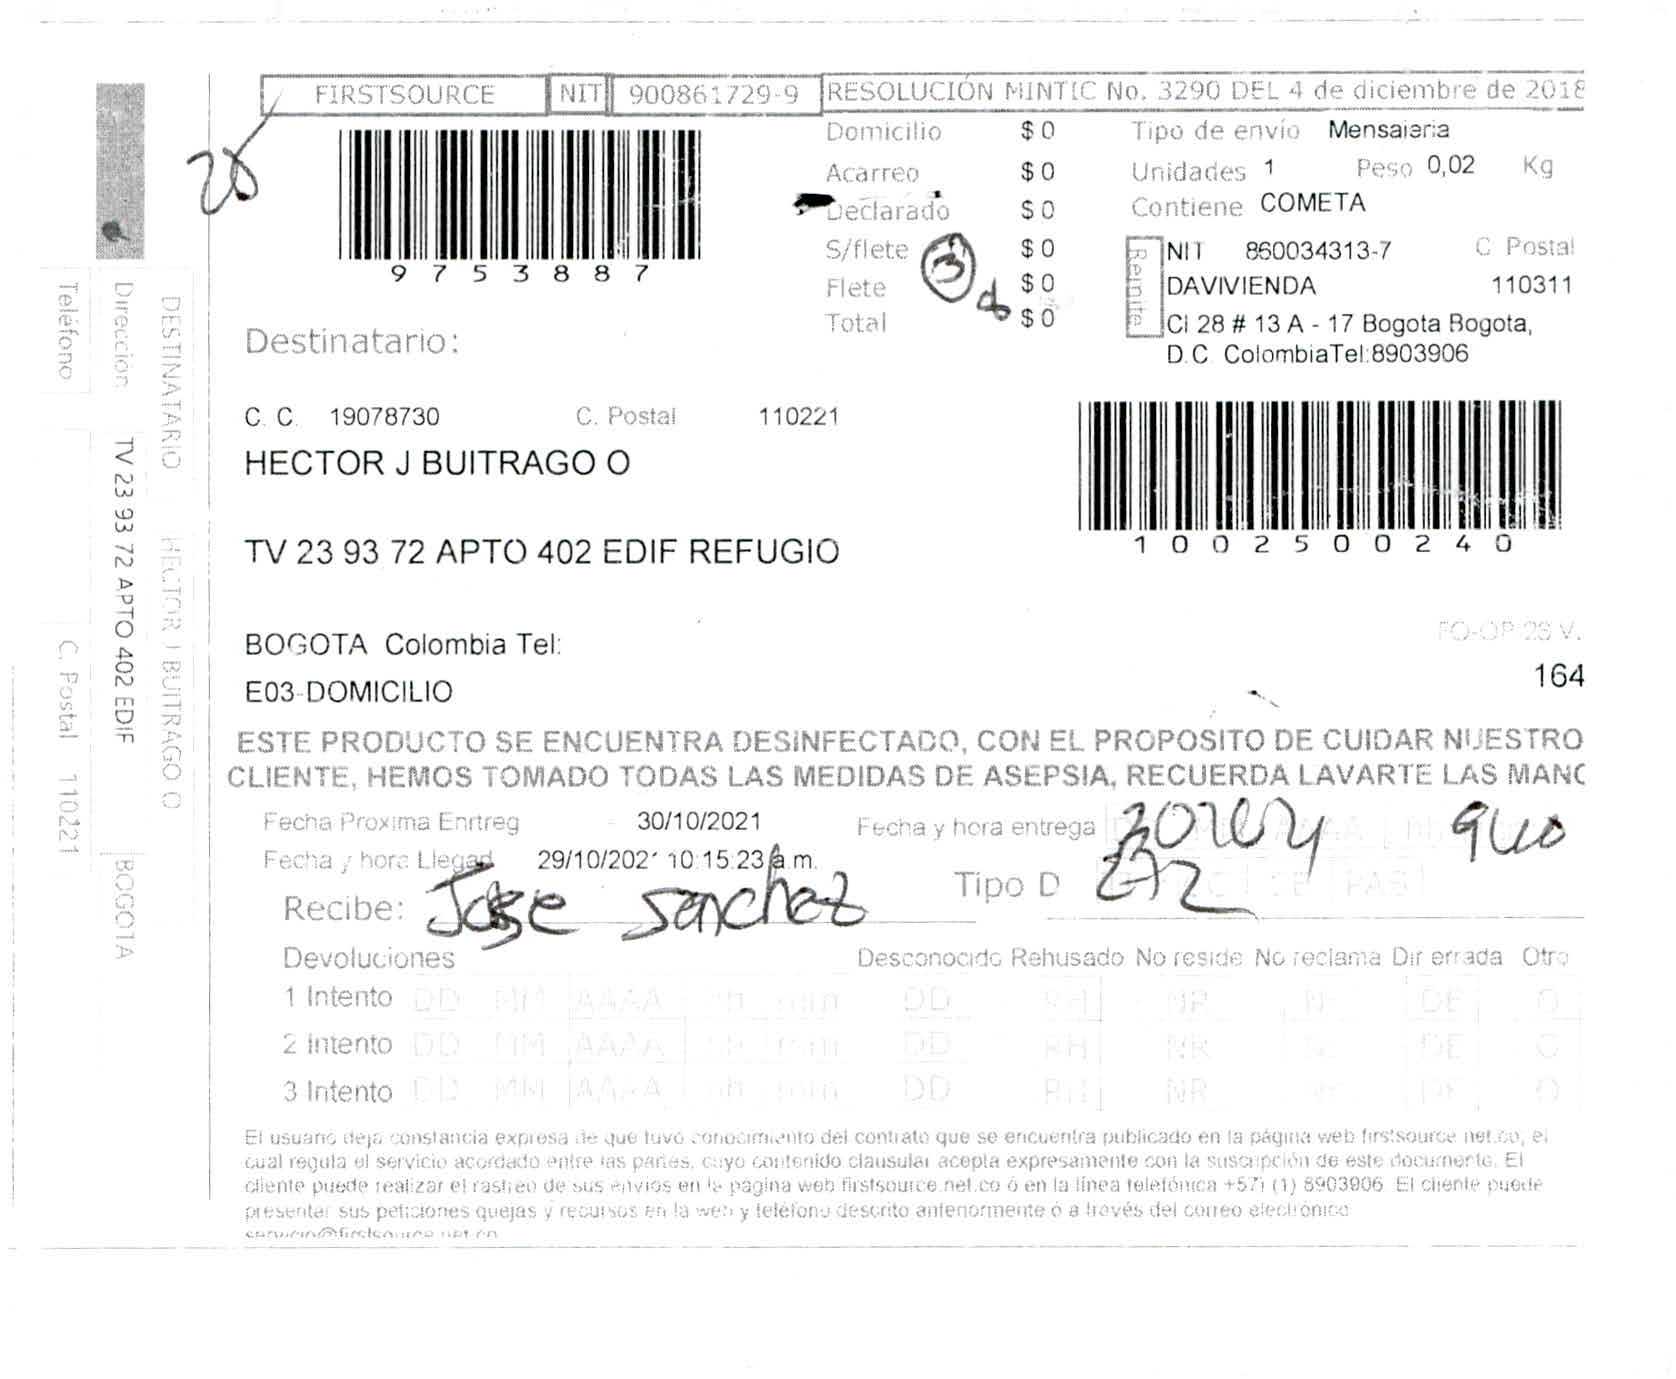 FIRSTSOURCE NIT 900861729-9 RESOLUCIÓN MINTIC No. 3290 DEL 4 de diciembre de 2018
9753887
Domicilio $ 0
Acarreo $ 0
Declarado $ 0
S/flete $ 0
Flete $ 0
Total $ 0
3
Tipo de envío Mensajeria
Unidades 1 Peso 0,02 Kg
Contiene COMETA
Remite
NIT 860034313-7 C Postal
DAVIVIENDA 110311
Cl 28 # 13 A - 17 Bogota Bogota,
D.C. ColombiaTel:8903906
Destinatario:
C. C. 19078730 C. Postal 110221
HECTOR J BUITRAGO O
1002500240
TV 23 93 72 APTO 402 EDIF REFUGIO
BOGOTA Colombia Tel:
FO-OP 23 V.
E03-DOMICILIO
164
ESTE PRODUCTO SE ENCUENTRA DESINFECTADO, CON EL PROPOSITO DE CUIDAR NUESTRO
CLIENTE, HEMOS TOMADO TODAS LAS MEDIDAS DE ASEPSIA, RECUERDA LAVARTE LAS MANO
Fecha Proxima Enrtreg 30/10/2021 Fecha y hora entrega
Fecha y hora Llegad 29/10/2021 10:15:23 a.m.
Recibe: Jose Sanchez Tipo D
Devoluciones Desconocido Rehusado No reside No reclama Dir errada Otro
1 Intento DD MM AAAA hh mm DD RH NR Nr DE O
2 Intento DD MM AAAA hh mm DD RH NR Nr DE O
3 Intento DD MM AAAA hh mm DD RH NR Nr DE O
El usuario deja constancia expresa de que tuvo conocimiento del contrato que se encuentra publicado en la página web firstsource.net.co, el
cual regula el servicio acordado entre las partes, cuyo contenido clausular acepta expresamente con la suscripción de este documento. El
cliente puede realizar el rastreo de sus envios en la pagina web firstsource.net.co ó en la línea telefónica +571 (1) 8903906. El cliente puede
presentar sus peticiones quejas y recursos en la web y teléfono descrito anteriormente ó a través del correo electronico
servicio@firstsource.net.co
DESTINATARIO HECTOR J BUITRAGO O
Dirección TV 23 93 72 APTO 402 EDIF BOGOTA
Teléfono C. Postal 110221